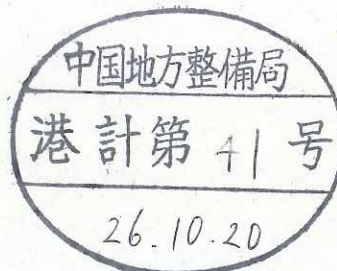 中国地方整備局
港計第 41 号
26.10.20